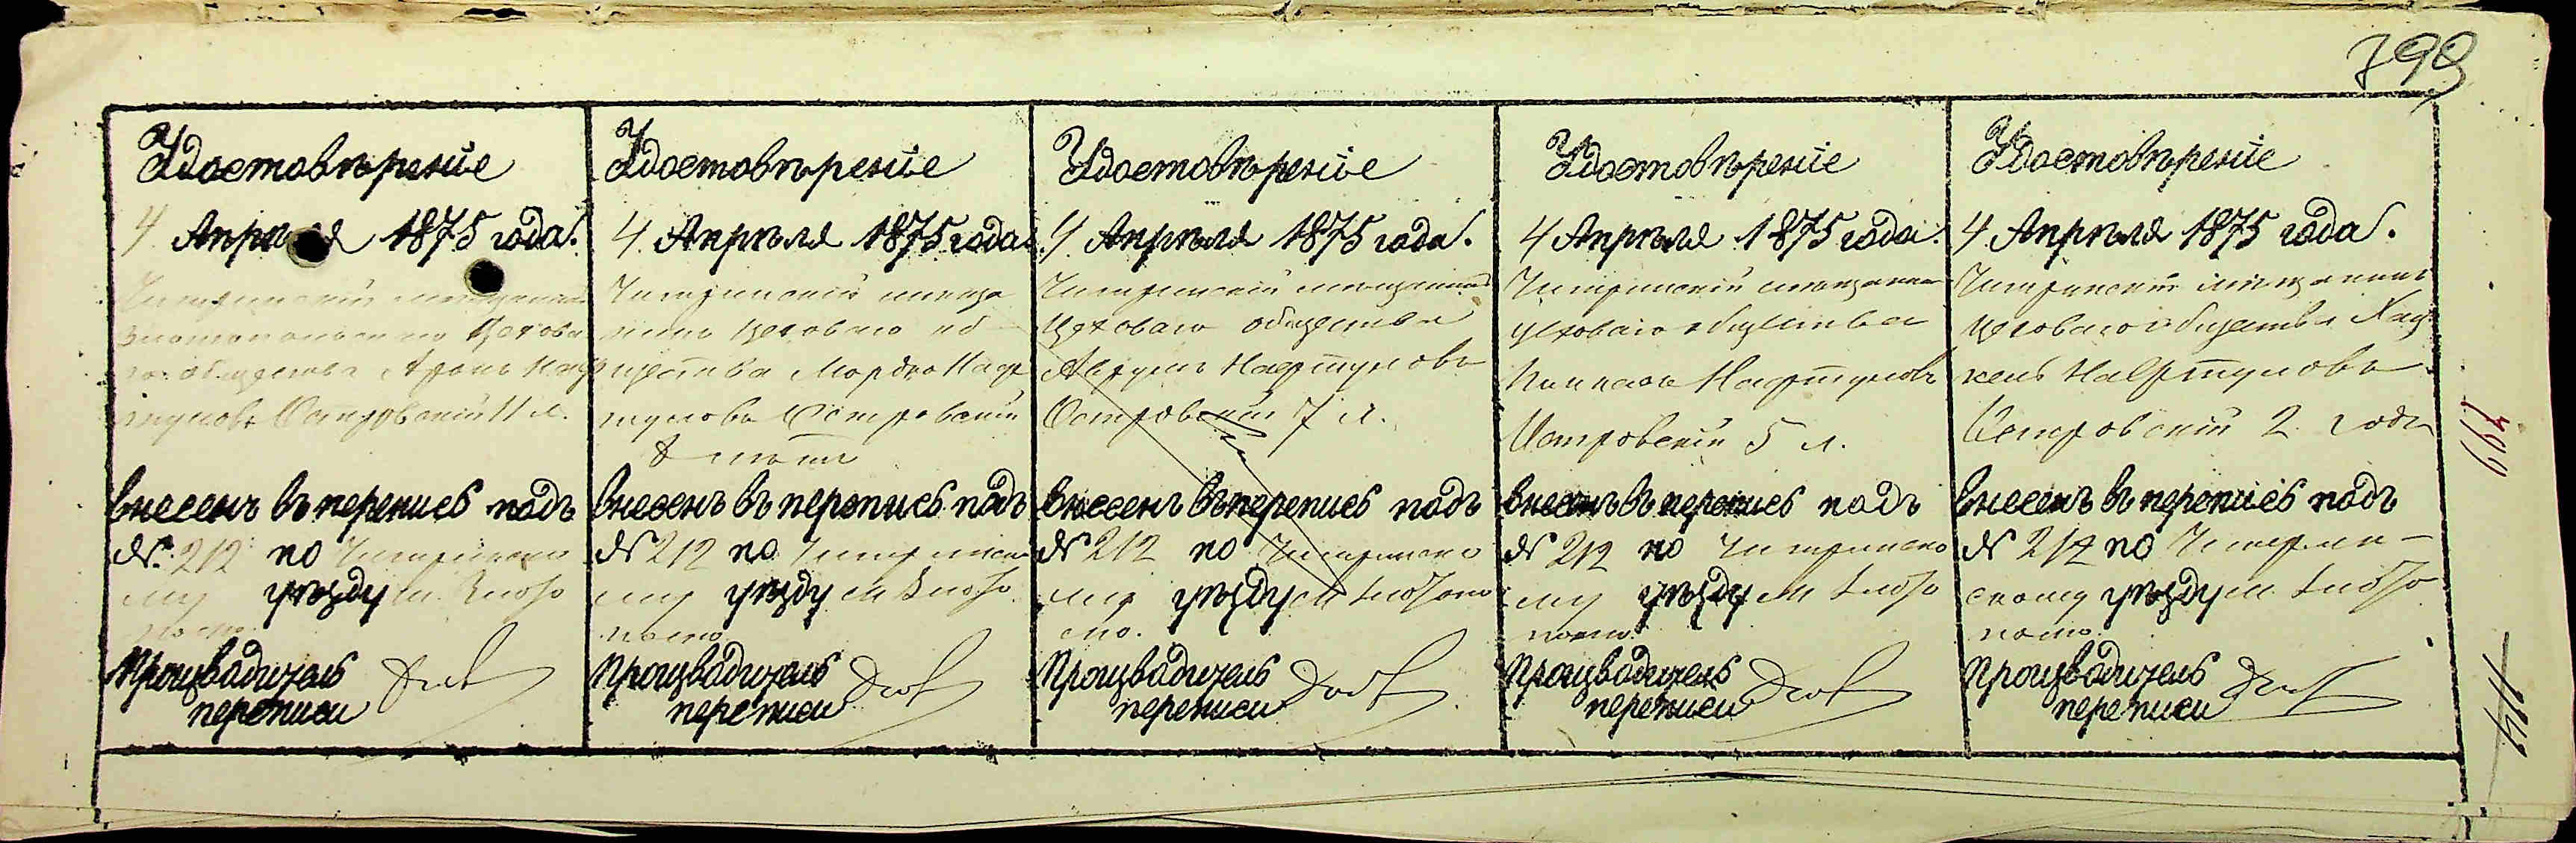 799
Удостовѣреніе
4 Апрѣля 1875 года.
цехова
го общества Аронъ Наф
туловъ Островскій 11 л.
внесенъ въ перепись подъ
№ 212 по
му уѣзду м.
Производитель
переписи
Удостовѣреніе
4 Апрѣля 1875 года.
Чигринскій мѣща
нинъ цеховаго об
щества Мордко Наф
туловъ Островскій
8 лѣтъ
внесенъ въ перепись подъ
№ 212 по Чигринско
му уѣзду м.
Производитель
переписи
Удостовѣреніе
4 Апрѣля 1875 года.
Чигринскій мѣщанинъ
цеховаго общества
Аврумъ Нафтуловъ
Островскій 7 л.
внесенъ въ перепись подъ
№ 212 по Чигринско
му уѣзду м.
Производитель
переписи
Удостовѣреніе
4 Апрѣля 1875 года.
Чигринскій мѣщанинъ
цеховаго общества
Нафтуловъ
Островскій 5 л.
внесенъ въ перепись подъ
№ 212 по Чигринско
му уѣзду м.
Производитель
переписи
Удостовѣреніе
4 Апрѣля 1875 года.
Чигринскій мѣщанинъ
цеховаго общества Хас
кель Нафтуловъ
Островскій 2 года
внесенъ въ перепись подъ
№ 212 по Чигрин-
скому уѣзду м.
Производитель
переписи
799